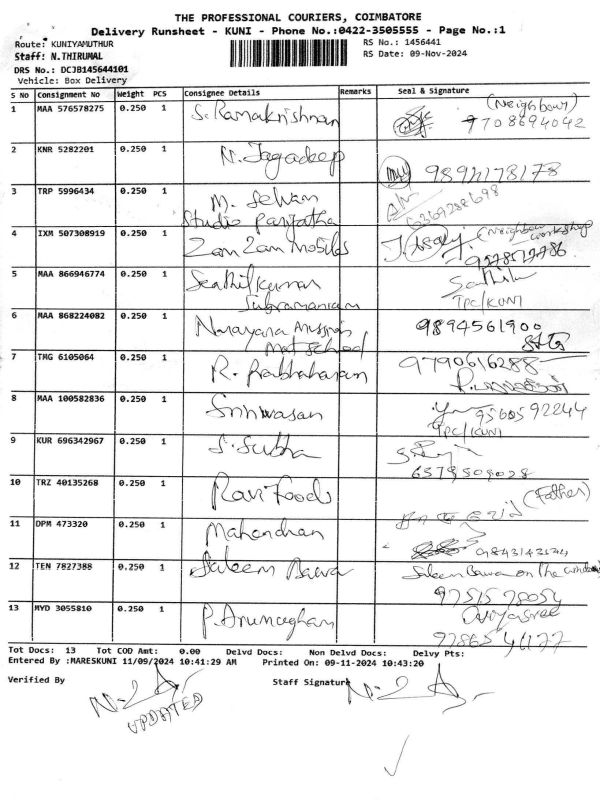 THE PROFESSIONAL COURIERS, COIMBATORE
Delivery Runsheet - KUNI - Phone No.:0422-3505555 - Page No.:1
Route: KUNIYAMUTHUR
RS No.: 1456441
Staff: N.THIRUMAL
RS Date: 09-Nov-2024
DRS No.: DCJB145644101
Vehicle: Box Delivery
S No Consignment No Weight PCS Consignee Details Remarks Seal & Signature
1 MAA 576578275 0.250 1 S. Ramakrishnan (Neighbour)
7708694042
2 KNR 5282201 0.250 1 N. Jagadeep
3 TRP 5996434 0.250 1 M. Selvam
Studio Parijatha
4 IXM 507308919 0.250 1 Zam Zam Mobiles (Neighbour workshop
5 MAA 866946774 0.250 1 Senthilkumar
Subramaniam
Senthil
TPC/KUNI
6 MAA 868224082 0.250 1 Narayana Mission
Mat School
9894561900
7 TMG 6105064 0.250 1 R. Prabhaharan 9790616288
8 MAA 100582836 0.250 1 Srinivasan 9566592244
TPC/KUNI
9 KUR 696342967 0.250 1 S. Subha
10 TRZ 40135268 0.250 1 Ravi Food (Father)
11 DPM 473320 0.250 1 Mahendran
12 TEN 7827388 0.250 1 Saleem Bawa Saleem Bawa on the
13 MYD 3055810 0.250 1 P. Arumugham
Tot Docs: 13 Tot COD Amt: 0.00 Delvd Docs: Non Delvd Docs: Delvy Pts:
Entered By :MARESKUNI 11/09/2024 10:41:29 AM Printed On: 09-11-2024 10:43:20
Verified By Staff Signature
UPDATED